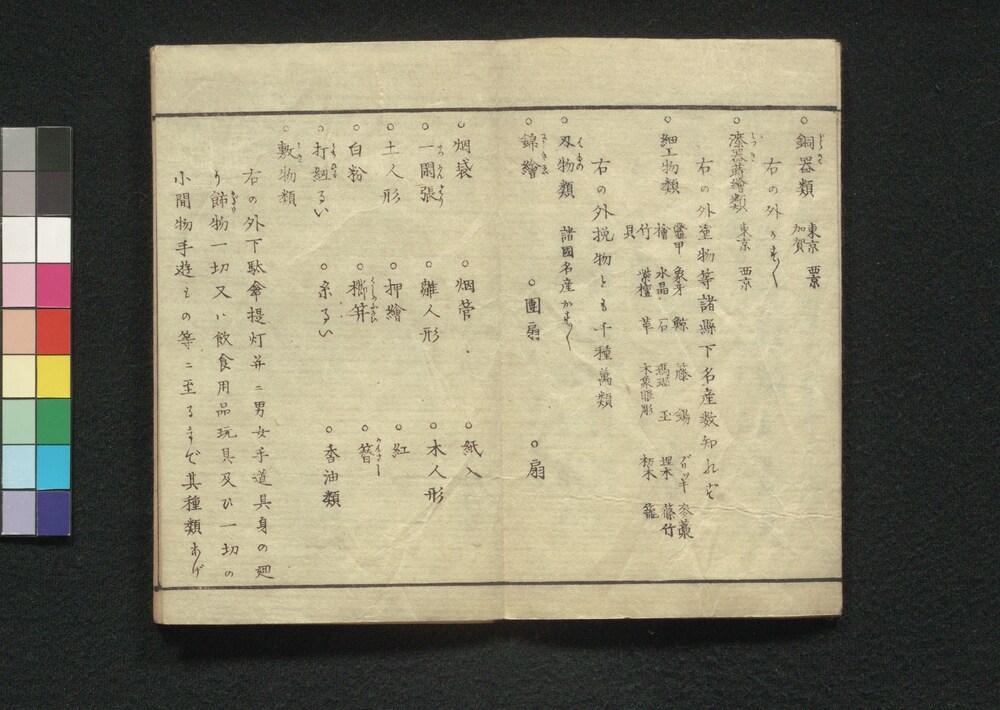 ○銅器類 東京 西京
加賀
右の外
○漆器蒔繪類 東京 西京
右の外塗物等諸縣下名産数知れず
○細工物類 鼈甲 象牙 鯨 藤 錫 麦藁
檜 水晶 石 瑪瑙 玉 埋木 藤竹
竹 紫檀 革 木象眼彫 杤木 籠
貝
右の外挽物とも千種萬類
○刃物類 諸國名産
○錦繪 ○團扇 ○扇
○烟袋 ○烟菅 ○紙入
○一閑張 ○雛人形 ○木人形
○土人形 ○押繪 ○紅
○白粉 ○櫛笄 ○簪
○打紐るい ○糸るい ○香油類
○敷物類
右の外下駄傘提灯并ニ男女手道具身の廻
り飾物一切又ハ飲食用品玩具及ひ一切の
小間物手遊もの等ニ至るまで其種類あげ